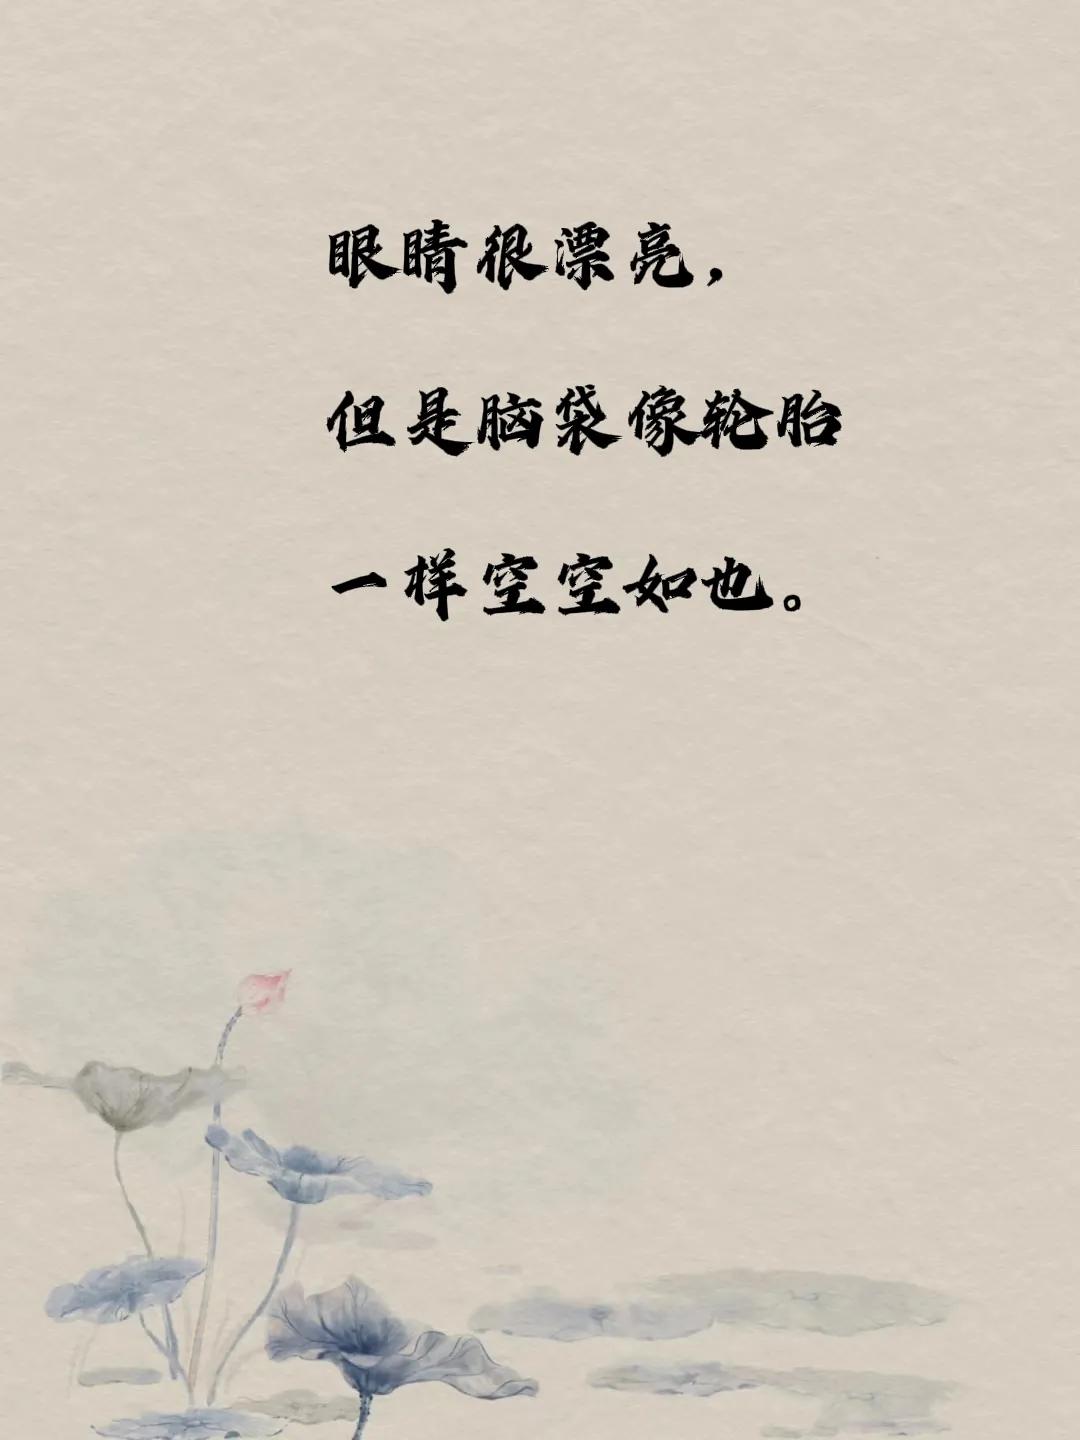 眼睛很漂亮，
但是脑袋像轮胎
一样空空如也。